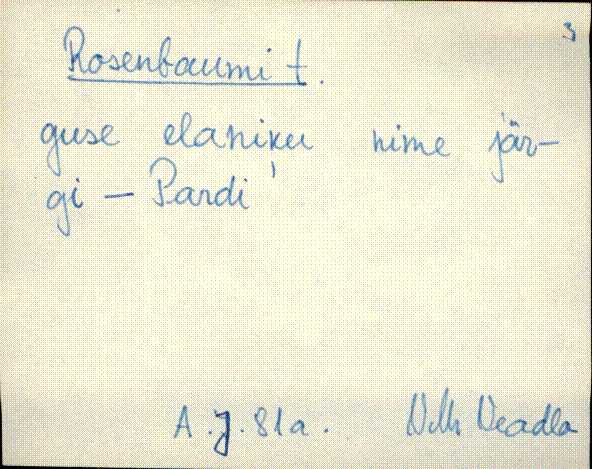 3
Rosenbaumi t.
guse elaniku nime jär-
gi — Pardi'
A.J. 81a. Veadla